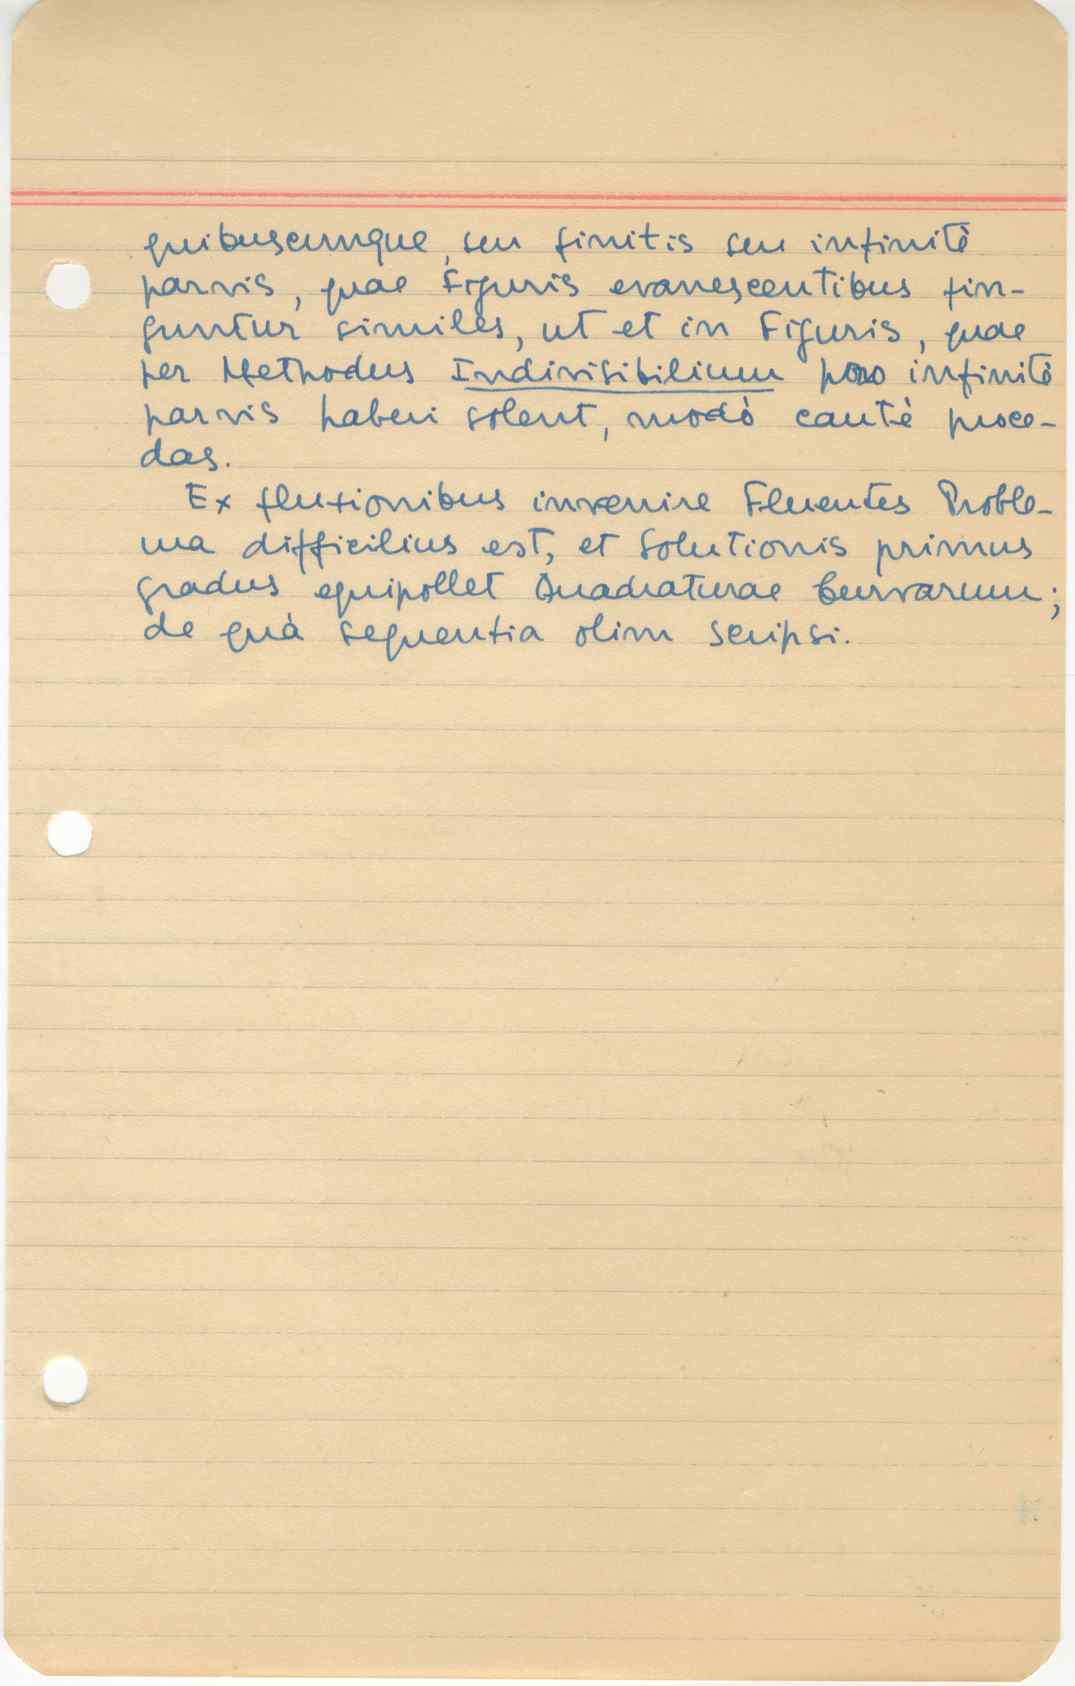 quibuscumque, seu finitis seu infinitè
parvis, quae Figuris evanescentibus fin-
guntur similes, ut et in Figuris, quae
per Methodus Indivisibilium pro infinitè
parvis haberi solent, modò cautè proce-
das.
Ex fluxionibus invenire Fluentes Proble-
ma difficilius est, et Solutionis primus
gradus equipollet Quadraturae Curvarum;
de quà sequentia olim scripsi.